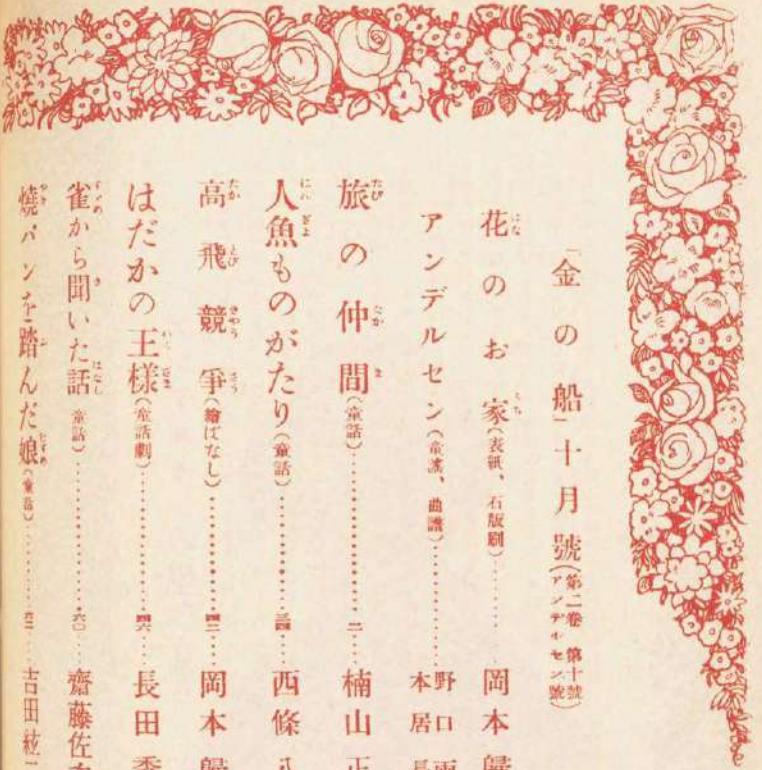 「金の船」十月號(第二卷 第十號)(アンデルセン號)
花のお家(表紙、石版刷)………岡本歸
アンデルセン(童謠、曲譜)………野口雨
本居長
旅の仲間(童話)………二…楠山正
人魚ものがたり(童話)………三四…西條八
高飛競爭(繪ばなし)………四二…岡本歸
はだかの王樣(童話劇)………四六…長田秀
雀から聞いた話(童話)………六〇…齋藤佐
燒パンを踏んだ娘(童話)………吉田絃